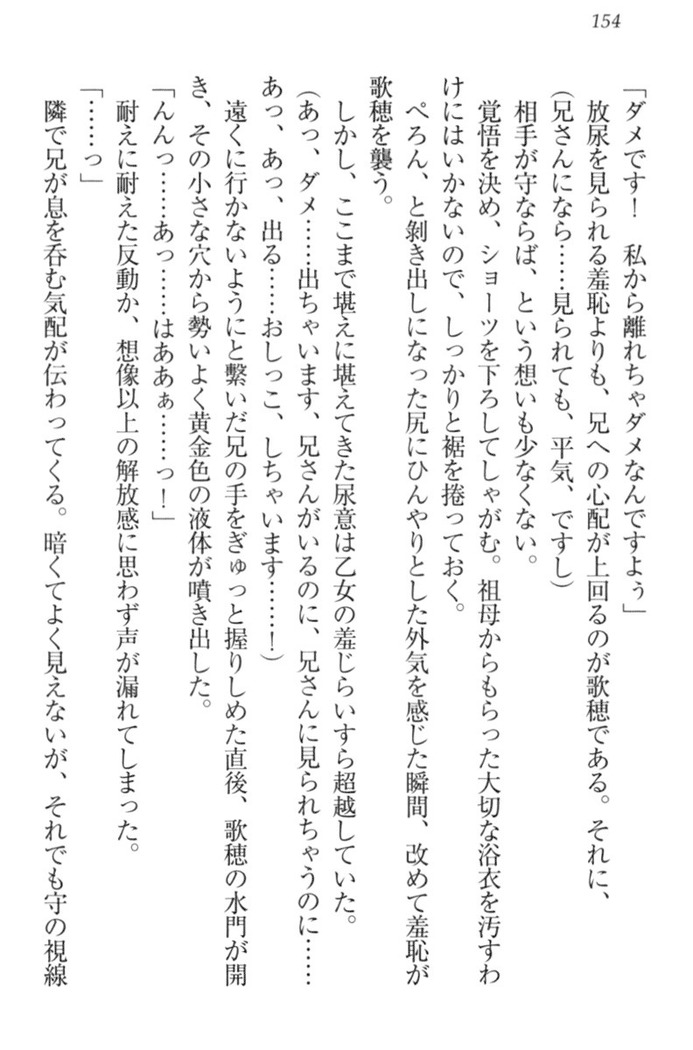 154
「ダメです！　私から離れちゃダメなんですよぅ」
放尿を見られる羞恥よりも、兄への心配が上回るのが歌穂である。それに、
(兄さんになら……見られても、平気、ですし)
相手が守ならば、という想いも少なくない。
覚悟を決め、ショーツを下ろしてしゃがむ。祖母からもらった大切な浴衣を汚すわ
けにはいかないので、しっかりと裾を捲っておく。
ぺろん、と剝き出しになった尻にひんやりとした外気を感じた瞬間、改めて羞恥が
歌穂を襲う。
しかし、ここまで堪えに堪えてきた尿意は乙女の羞じらいすら超越していた。
(あっ、ダメ……出ちゃいます、兄さんがいるのに、兄さんに見られちゃうのに……
あっ、あっ、出る……おしっこ、しちゃいます……！)
遠くに行かないようにと繋いだ兄の手をぎゅっと握りしめた直後、歌穂の水門が開
き、その小さな穴から勢いよく黄金色の液体が噴き出した。
「んんっ……あっ……はああぁ……っ！」
耐えに耐えた反動か、想像以上の解放感に思わず声が漏れてしまった。
「……っ」
隣で兄が息を呑む気配が伝わってくる。暗くてよく見えないが、それでも守の視線